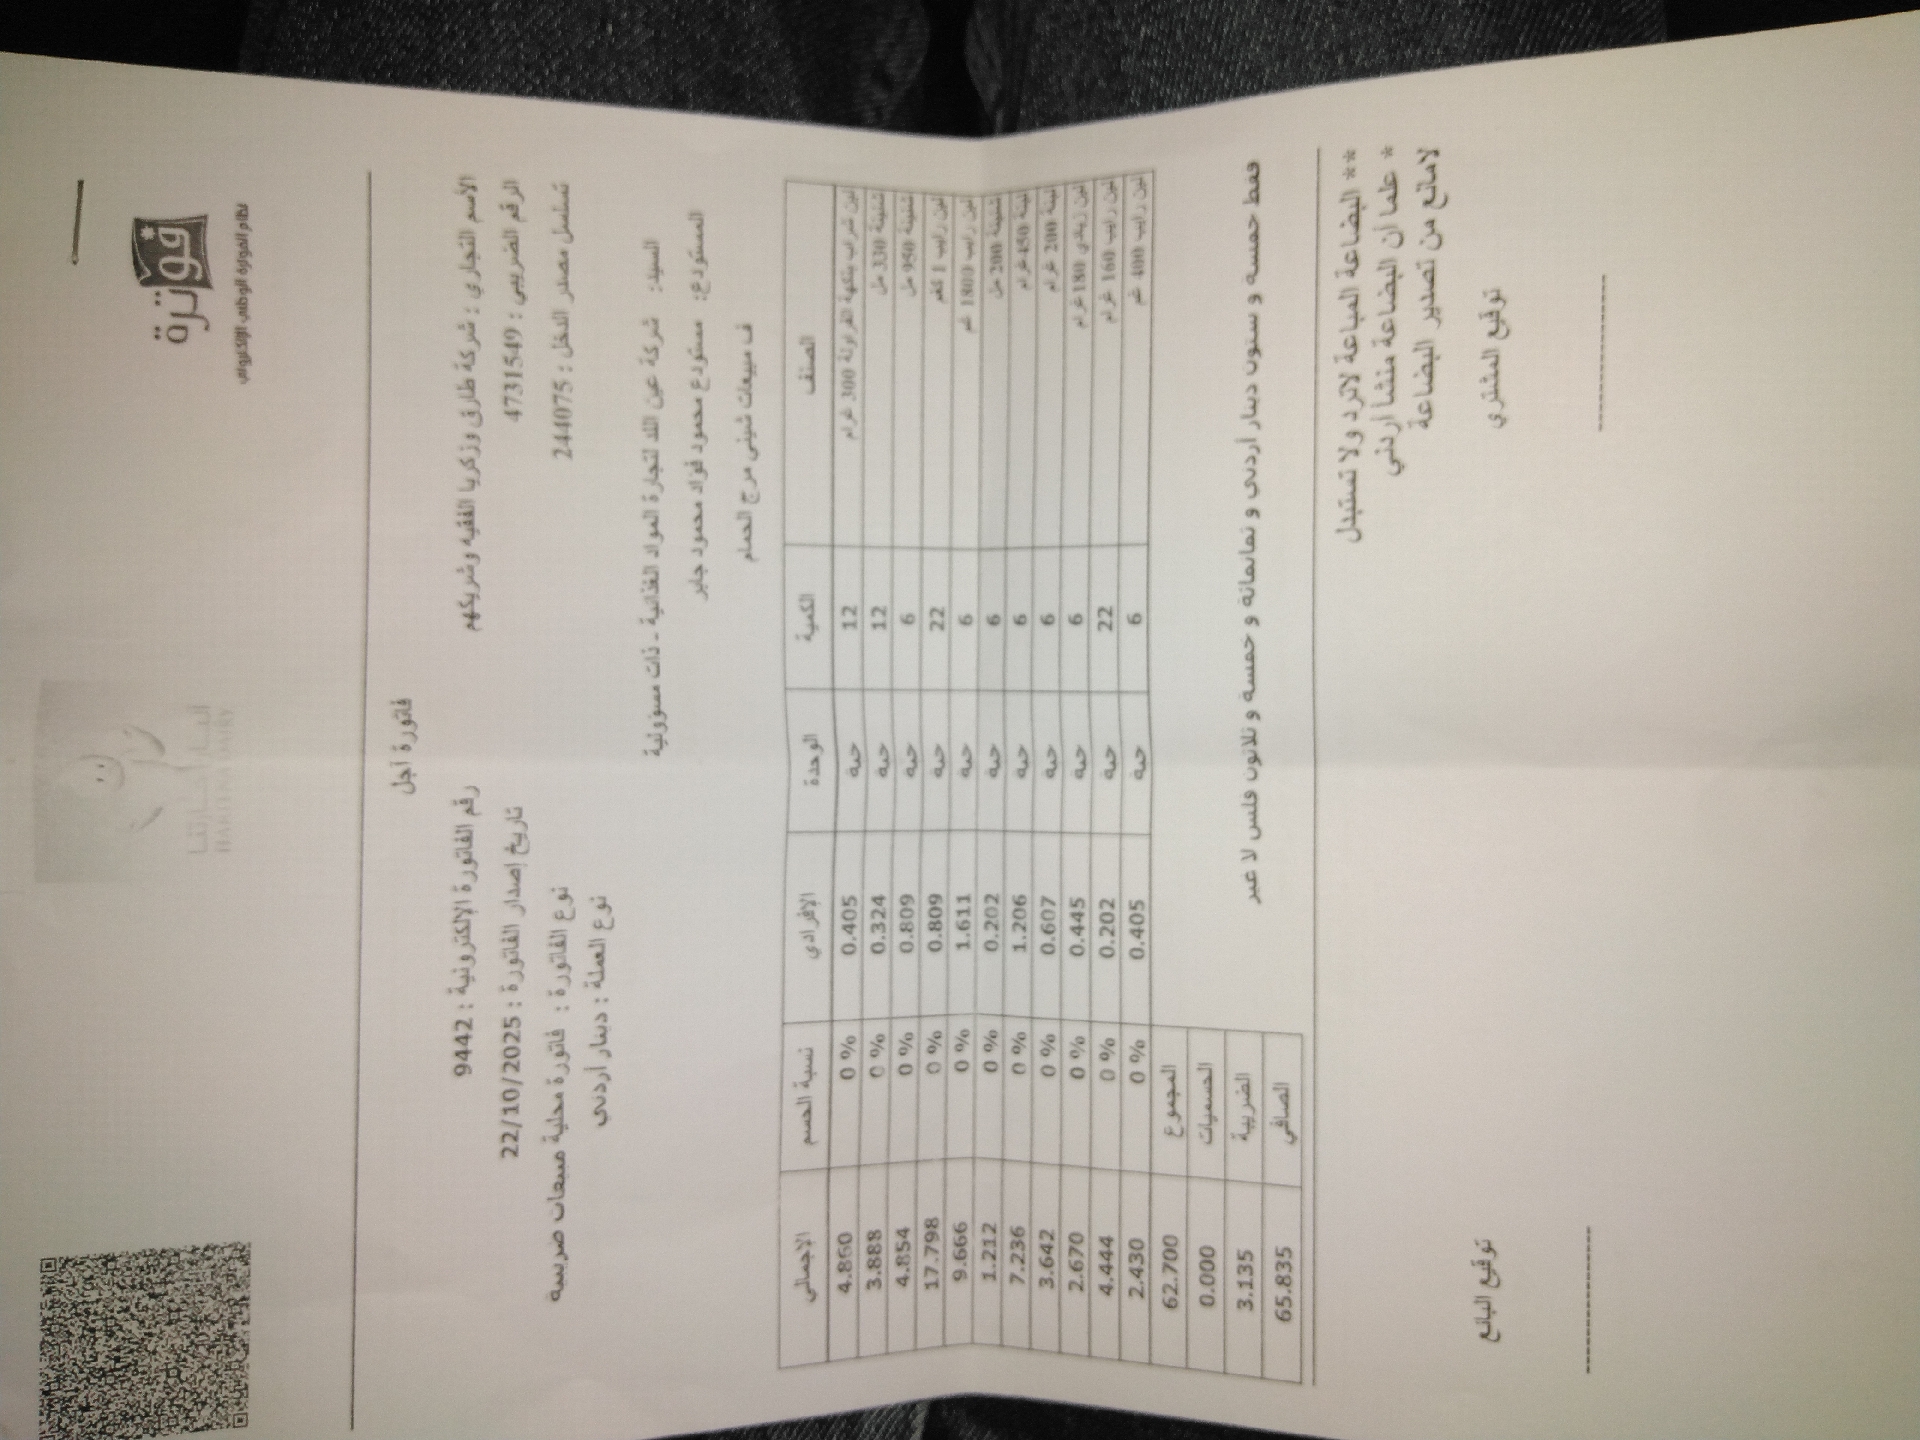 فوترة
نظام الفوترة الوطني الإلكتروني
فاتورة آجل
الأسم التجاري : شركة طارق وزكريا الفقيه وشريكهم
رقم الفاتورة الإلكترونية : 9442
الرقم الضريبي : 4731549
تاريخ إصدار الفاتورة : 22/10/2025
تسلسل مصدر الدخل : 244075
نوع الفاتورة : فاتورة محلية مبيعات ضريبية
نوع العملة : دينار أردني
السيد: شركة عين اللد لتجارة المواد الغذائية - ذات مسؤولية
المستودع: مستودع محمود فؤاد محمود جابر
ف مبيعات شيني مرج الحمام
الصنف الكمية الوحدة الإفرادي نسبة الحسم الاجمالي
لبن شراب بنكهة الفراولة 300 غرام 12 حبة 0.405 0 % 4.860
شنينة 330 مل 12 حبة 0.324 0 % 3.888
شنينة 950 مل 6 حبة 0.809 0 % 4.854
لبن رايب 1 كغم 22 حبة 0.809 0 % 17.798
لبن رايب 1800 غم 6 حبة 1.611 0 % 9.666
شنينة 200 مل 6 حبة 0.202 0 % 1.212
لبنة 450 غرام 6 حبة 1.206 0 % 7.236
لبنة 200 غرام 6 حبة 0.607 0 % 3.642
لبن زبادي 180 غرام 6 حبة 0.445 0 % 2.670
لبن رايب 160 غرام 22 حبة 0.202 0 % 4.444
لبن رايب 400 غم 6 حبة 0.405 0 % 2.430
المجموع 62.700
الحسميات 0.000
الضريبة 3.135
الصافي 65.835
فقط خمسة و ستون دينار أردنى و ثمانمائة و خمسة و ثلاثون فلس لا غير
** البضاعة المباعة لاترد ولا تستبدل
* علما أن البضاعة منشأ أردني
لامانع من تصدير البضاعة
توقيع المشتري توقيع البائع